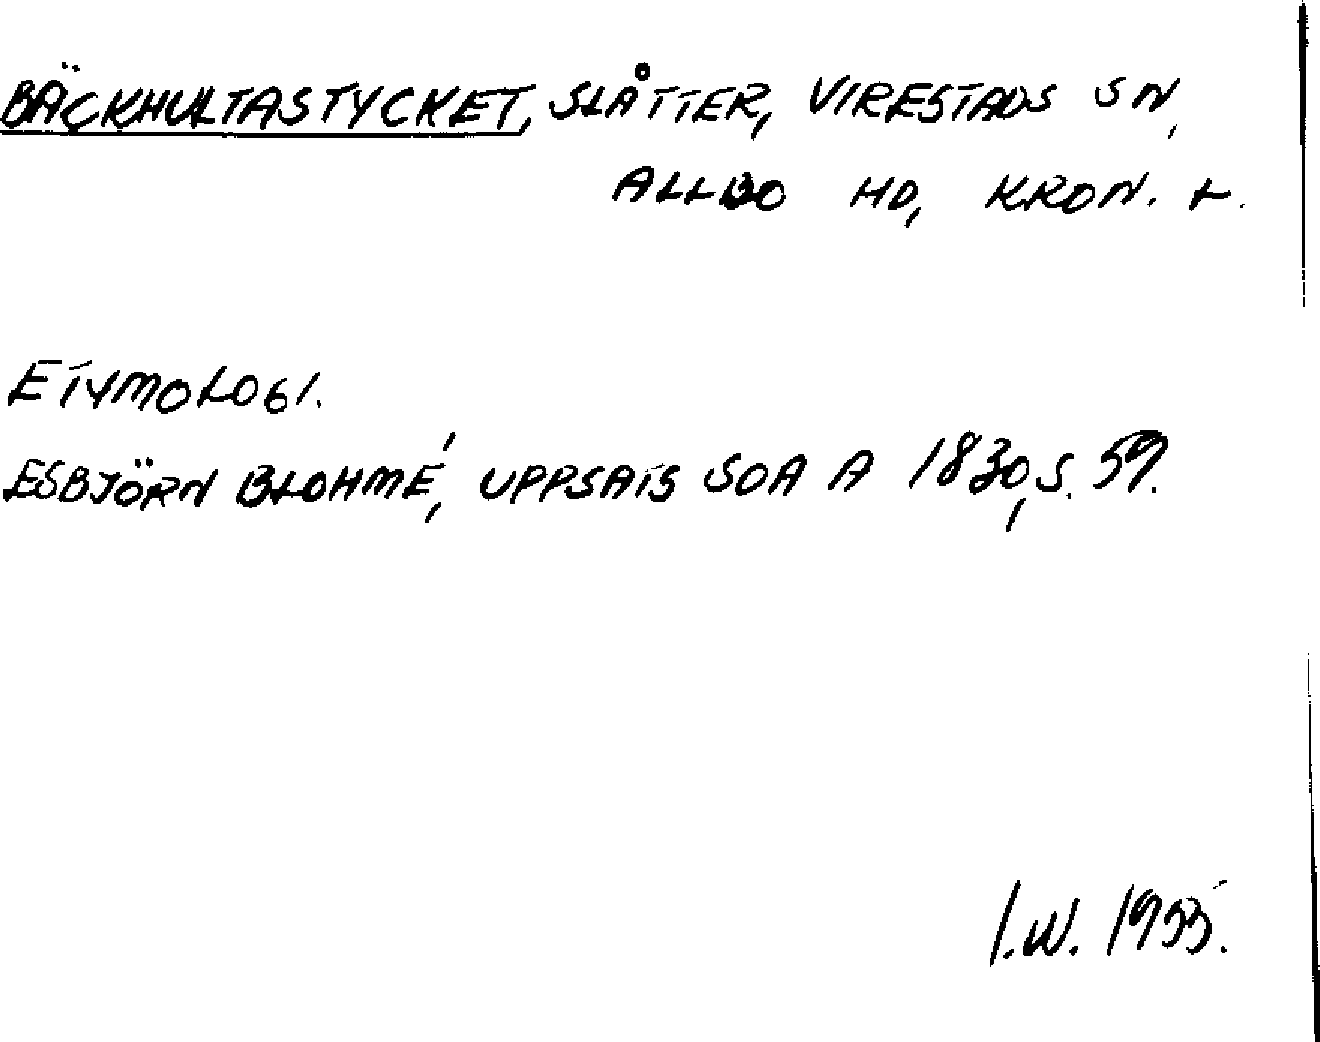 BÄCKHULTASTYCKET, SLÅTTER, VIRESTADS SN,
ALLBO HD, KRON. L.
ETYMOLOGI.
ESBJÖRN BLOHMÉ, UPPSATS SOA A 1830, S. 59.
I.W. 1955.